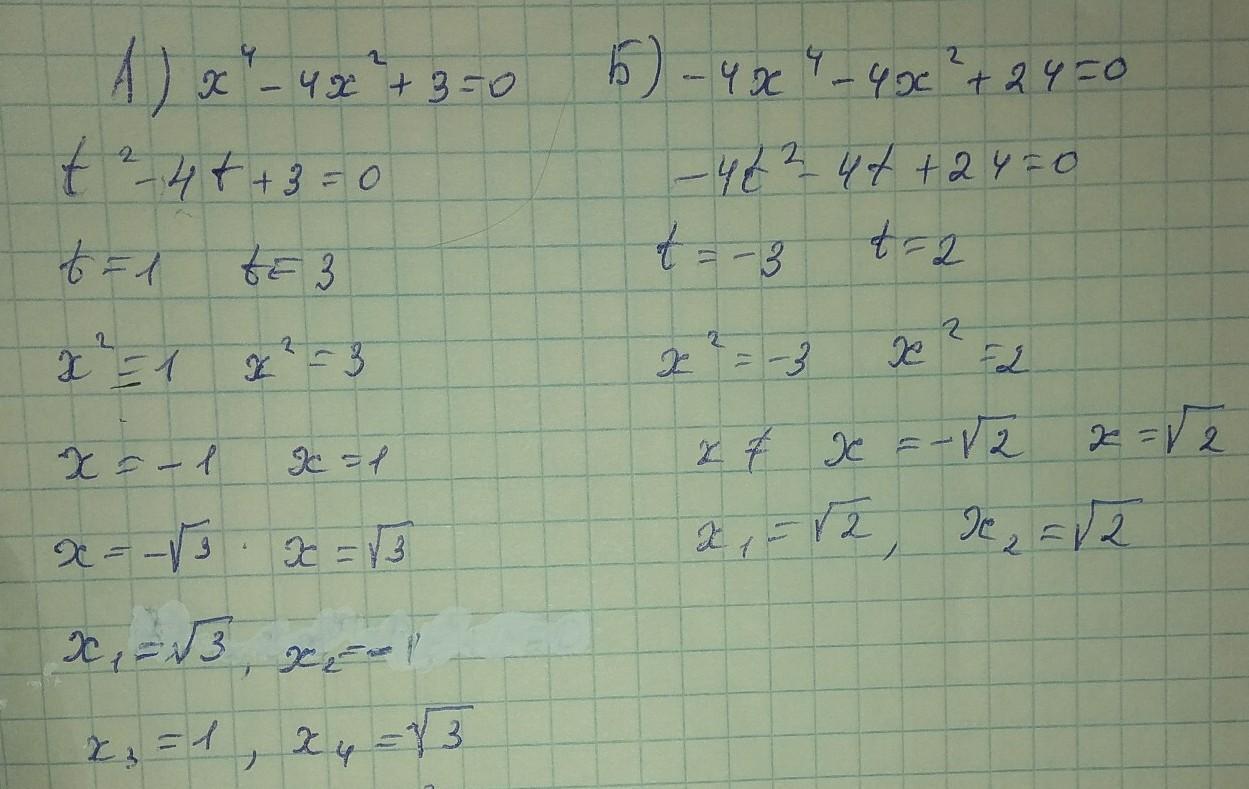 А) x⁴ - 4x² + 3 = 0
t² - 4t + 3 = 0
t = 1 t = 3
x² = 1 x² = 3
x = -1 x = 1
x = -√3 x = √3
x₁ = √3, x₂ = -1
x₃ = 1, x₄ = √3
Б) -4x⁴ - 4x² + 24 = 0
-4t² - 4t + 24 = 0
t = -3 t = 2
x² = -3 x² = 2
x ≠ x = -√2 x = √2
x₁ = √2, x₂ = √2